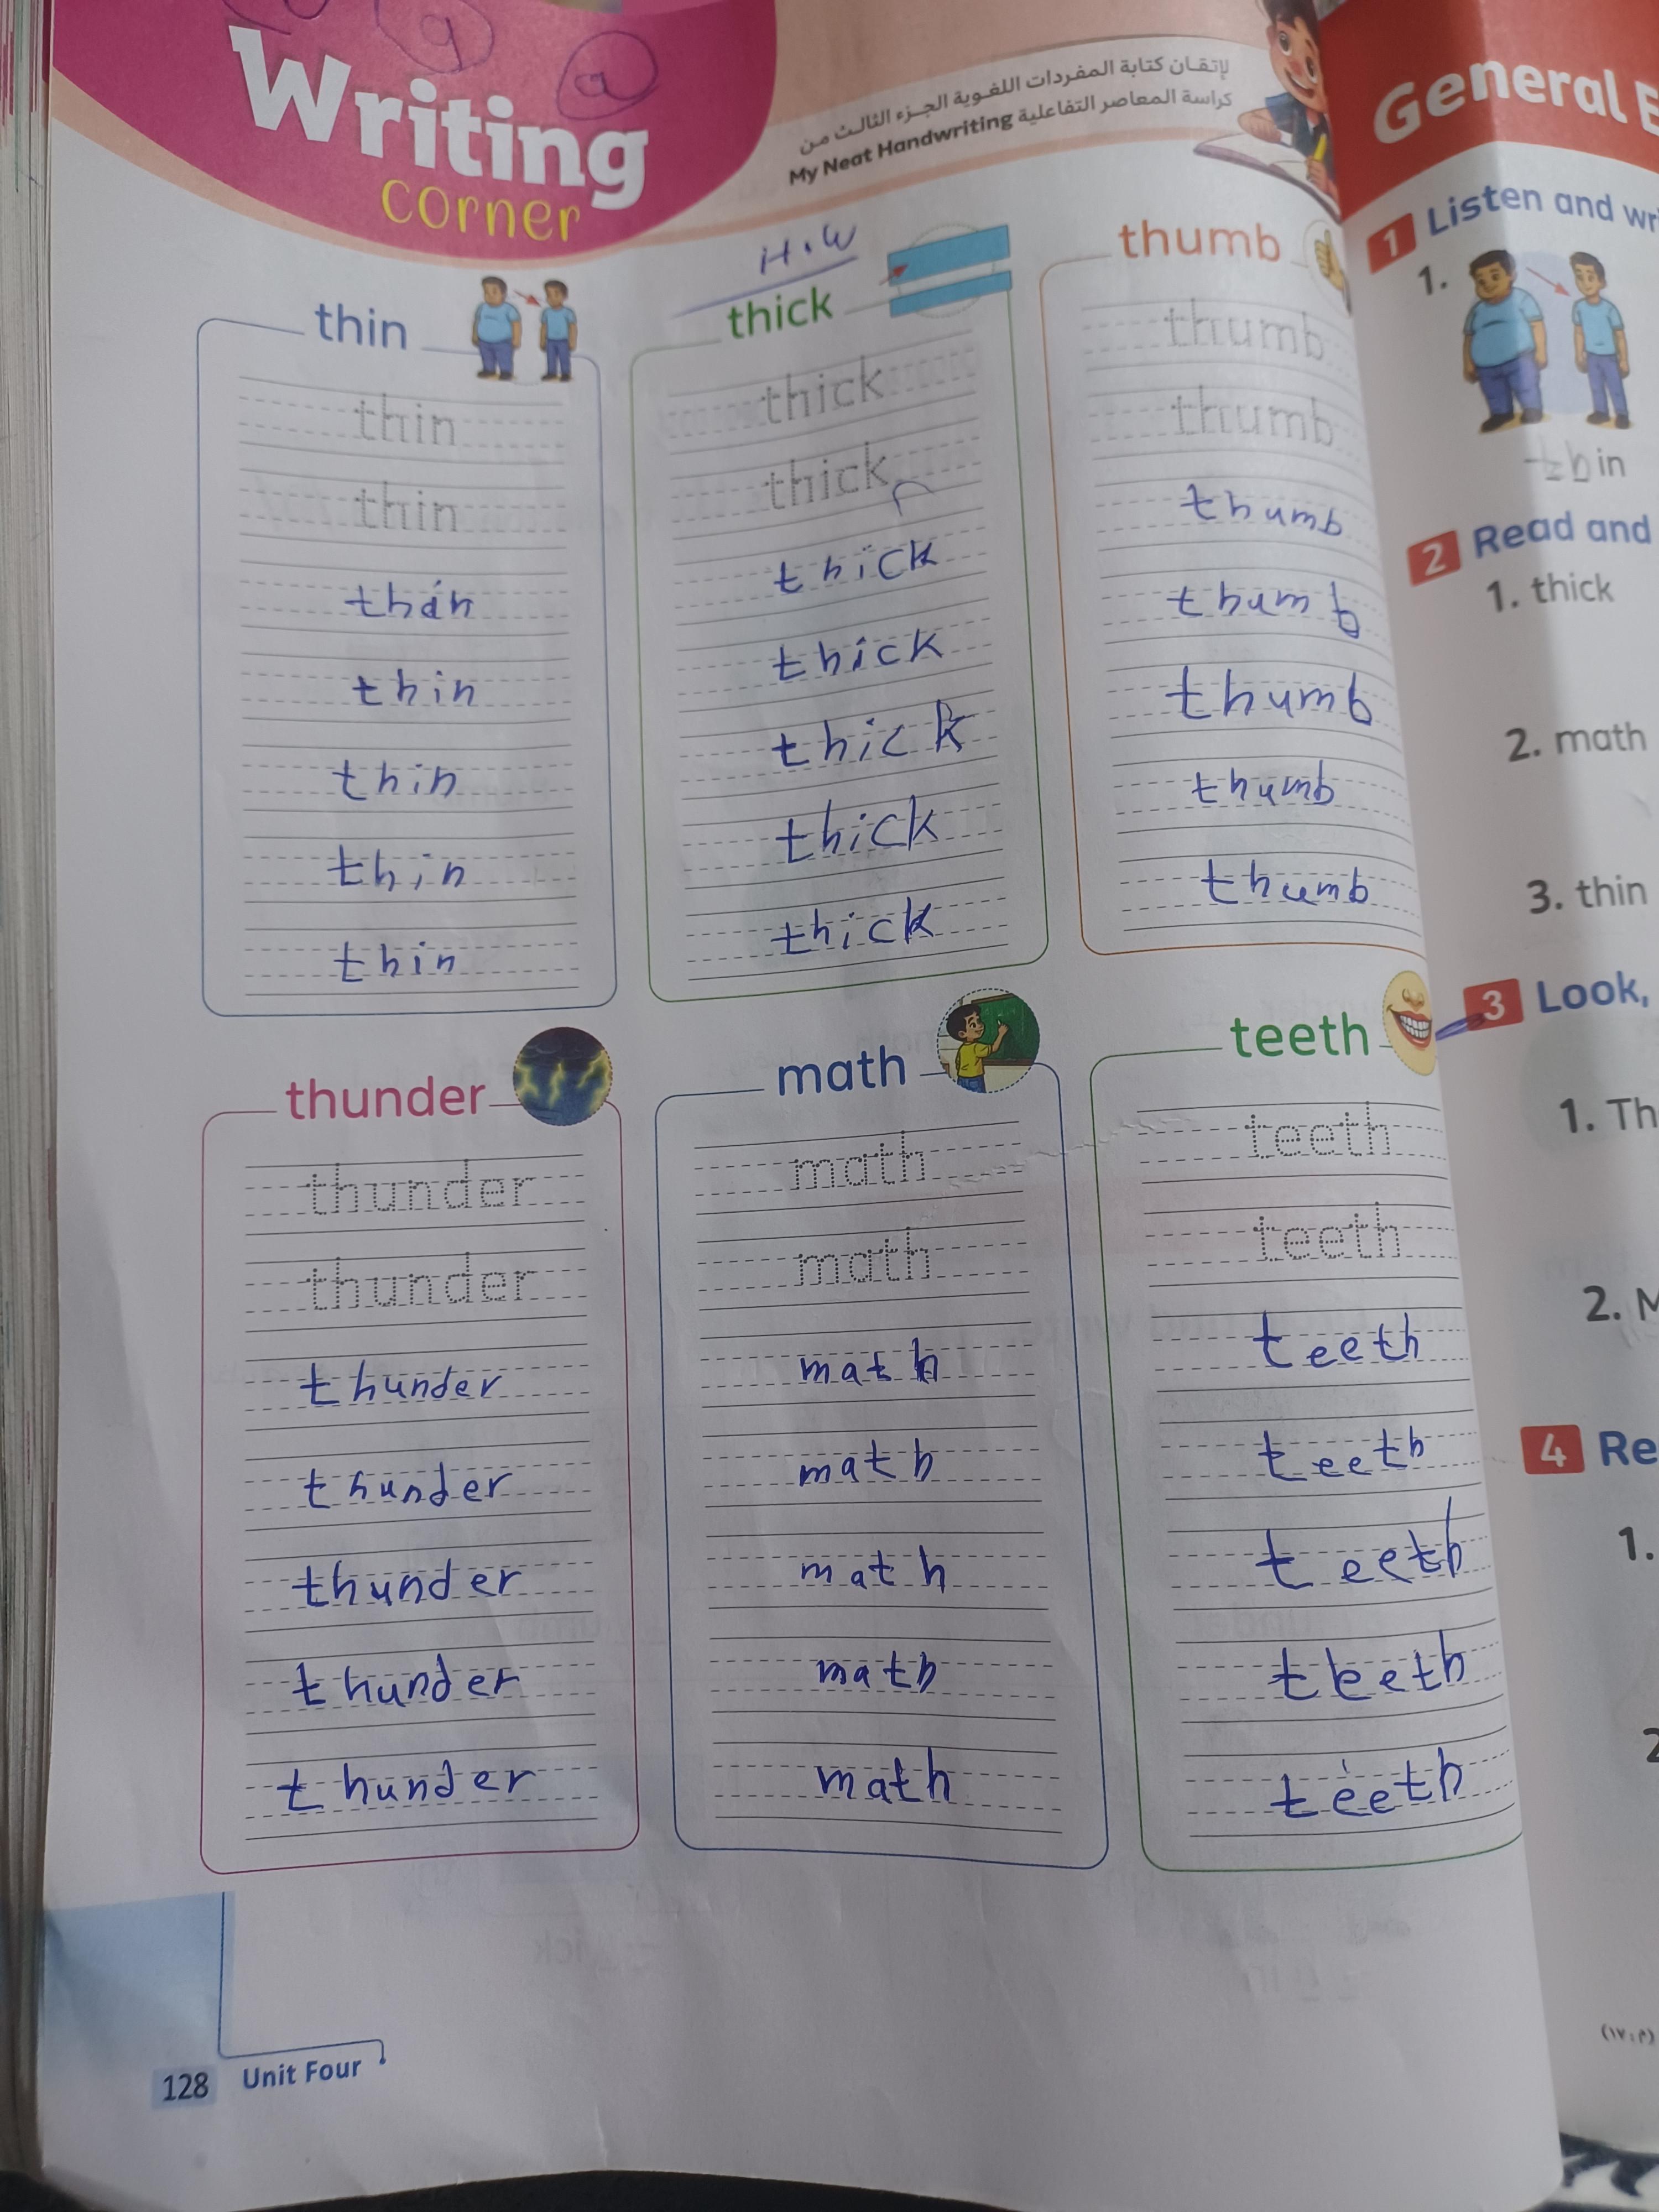 Writing
corner
لإتقان كتابة المفردات اللغوية الجزء الثالث من
كراسة المعاصر التفاعلية My Neat Handwriting
H.W
thin
thin
thin
thin
thin
thin
thin
thin
thick
thick
thick
thick
thick
thick
thick
thick
thumb
thumb
thumb
thumb
thumb
thumb
thumb
thumb
thunder
thunder
thunder
thunder
thunder
thunder
thunder
thunder
math
math
math
math
math
math
math
math
teeth
teeth
teeth
teeth
teeth
teeth
teeth
teeth
128 Unit Four
General
1 Listen and
1.
in
2 Read and
1. thick
2. math
3. thin
3 Look,
1. Th
2.
4 Re
1.
2